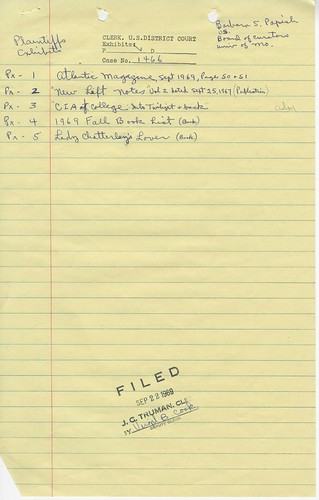 Plaintiffs
Exhibits
CLERK, U.S. DISTRICT COURT
Exhibits:
P ✓ D
Case No. 1466
Barbara S. Papish
vs.
Board of curators
univ of mo.
Px - 1 Atlantic Magazine, Sept 1969, Pages 50 & 51
Px - 2 "New Left Notes" Vol 2 dated Sept 25, 1967 (Publication)
Px - 3 "C.I.A. of College: Into Twilight & back
Px - 4 1969 Fall Book List (Book)
Px - 5 Lady Chatterley's Lover (Book)
FILED
SEP 22 1969
J. C. TRUMAN, CLK
BY B. Cook
DEPUTY CLERK